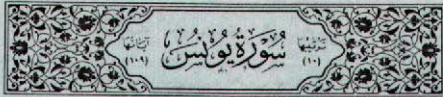 ترتيبها (١٠) سُورَةُ يُونُسَ آياتها (١٠٩)